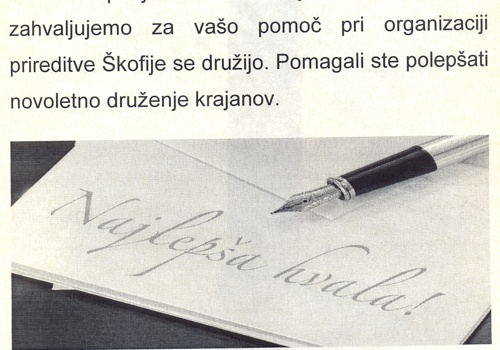 zahvaljujemo za vašo pomoč pri organizaciji
prireditve Škofije se družijo. Pomagali ste polepšati
novoletno druženje krajanov.
Najlepša hvala!